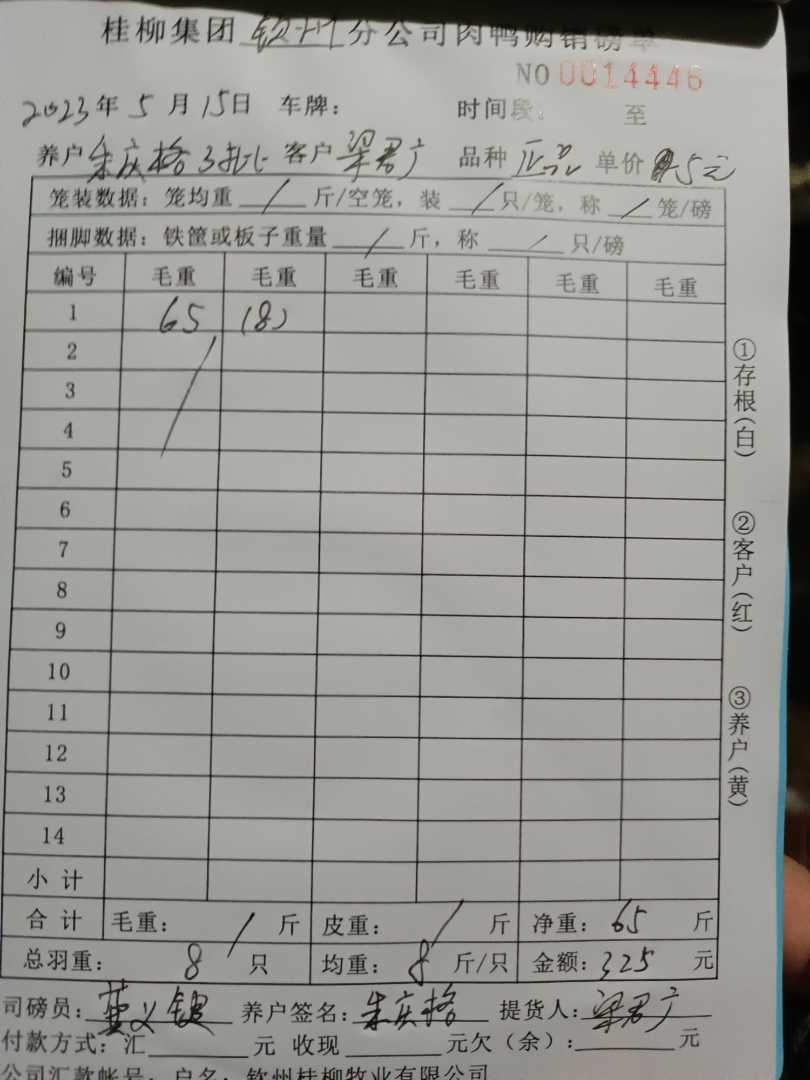 桂柳集团钦州分公司肉鸭购销磅单
NO 0014446
2023年5月15日 车牌： 时间段： 至
养户 朱庆格3批 客户 梁君广 品种 正品 单价 5元
笼装数据：笼均重 / 斤/空笼，装 / 只/笼，称 / 笼/磅
捆脚数据：铁筐或板子重量 / 斤，称 / 只/磅
编号 毛重 毛重 毛重 毛重 毛重 毛重
1 65 (8)
2
3
4
5
6
7
8
9
10
11
12
13
14
小计
合计 毛重： / 斤 皮重： / 斤 净重：65 斤
总羽重： 8 只 均重： 8 斤/只 金额：325 元
司磅员： 养户签名：朱庆格 提货人：梁君广
付款方式：汇 元 收现 元欠（余）： 元
公司汇款帐号：户名：钦州桂柳牧业有限公司
①存根(白)
②客户(红)
③养户(黄)